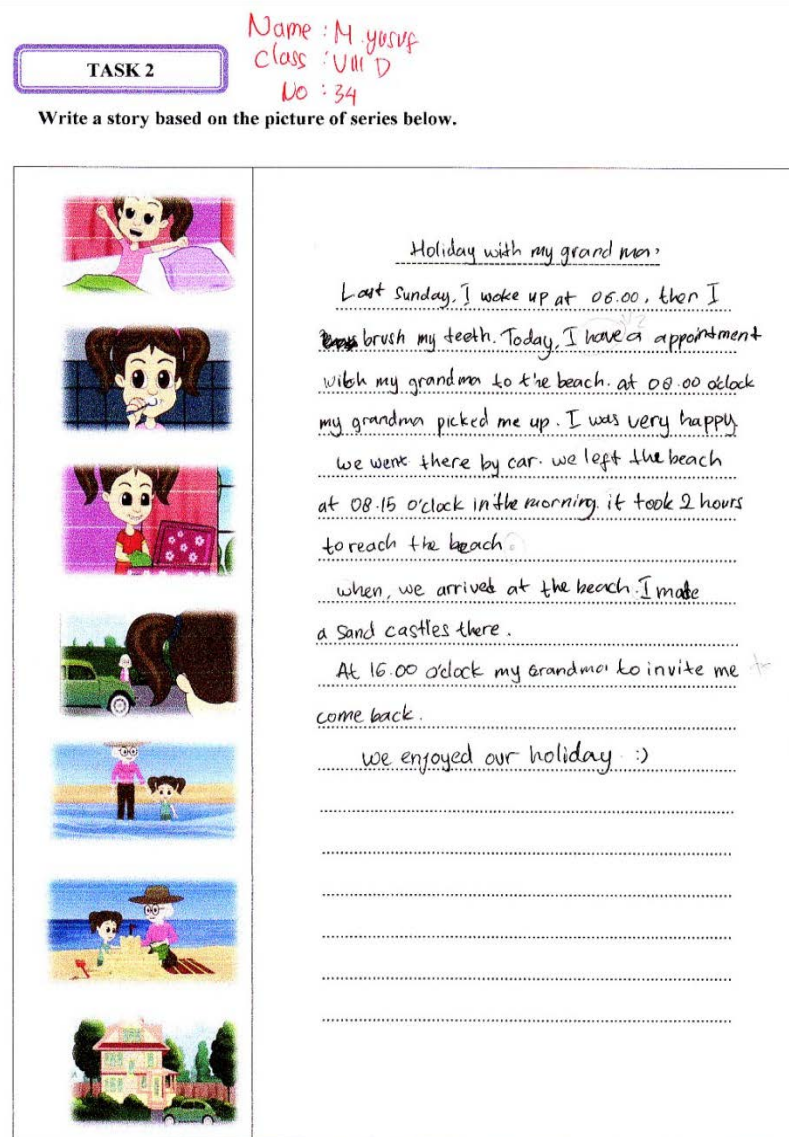 Name : M. yusuf
Class : VIII D
No : 34
TASK 2
Write a story based on the picture of series below.
Holiday with my grand ma.
Last Sunday, I woke up at 06.00, then I
brush my teeth. Today, I have a appointment
with my grandma to the beach. at 08.00 o'clock
my grandma picked me up. I was very happy
we went there by car. we left the beach
at 08.15 o'clock in the morning. it took 2 hours
to reach the beach.
when, we arrived at the beach. I made
a sand castles there.
At 16.00 o'clock my grandma to invite me
come back.
we enjoyed our holiday :)